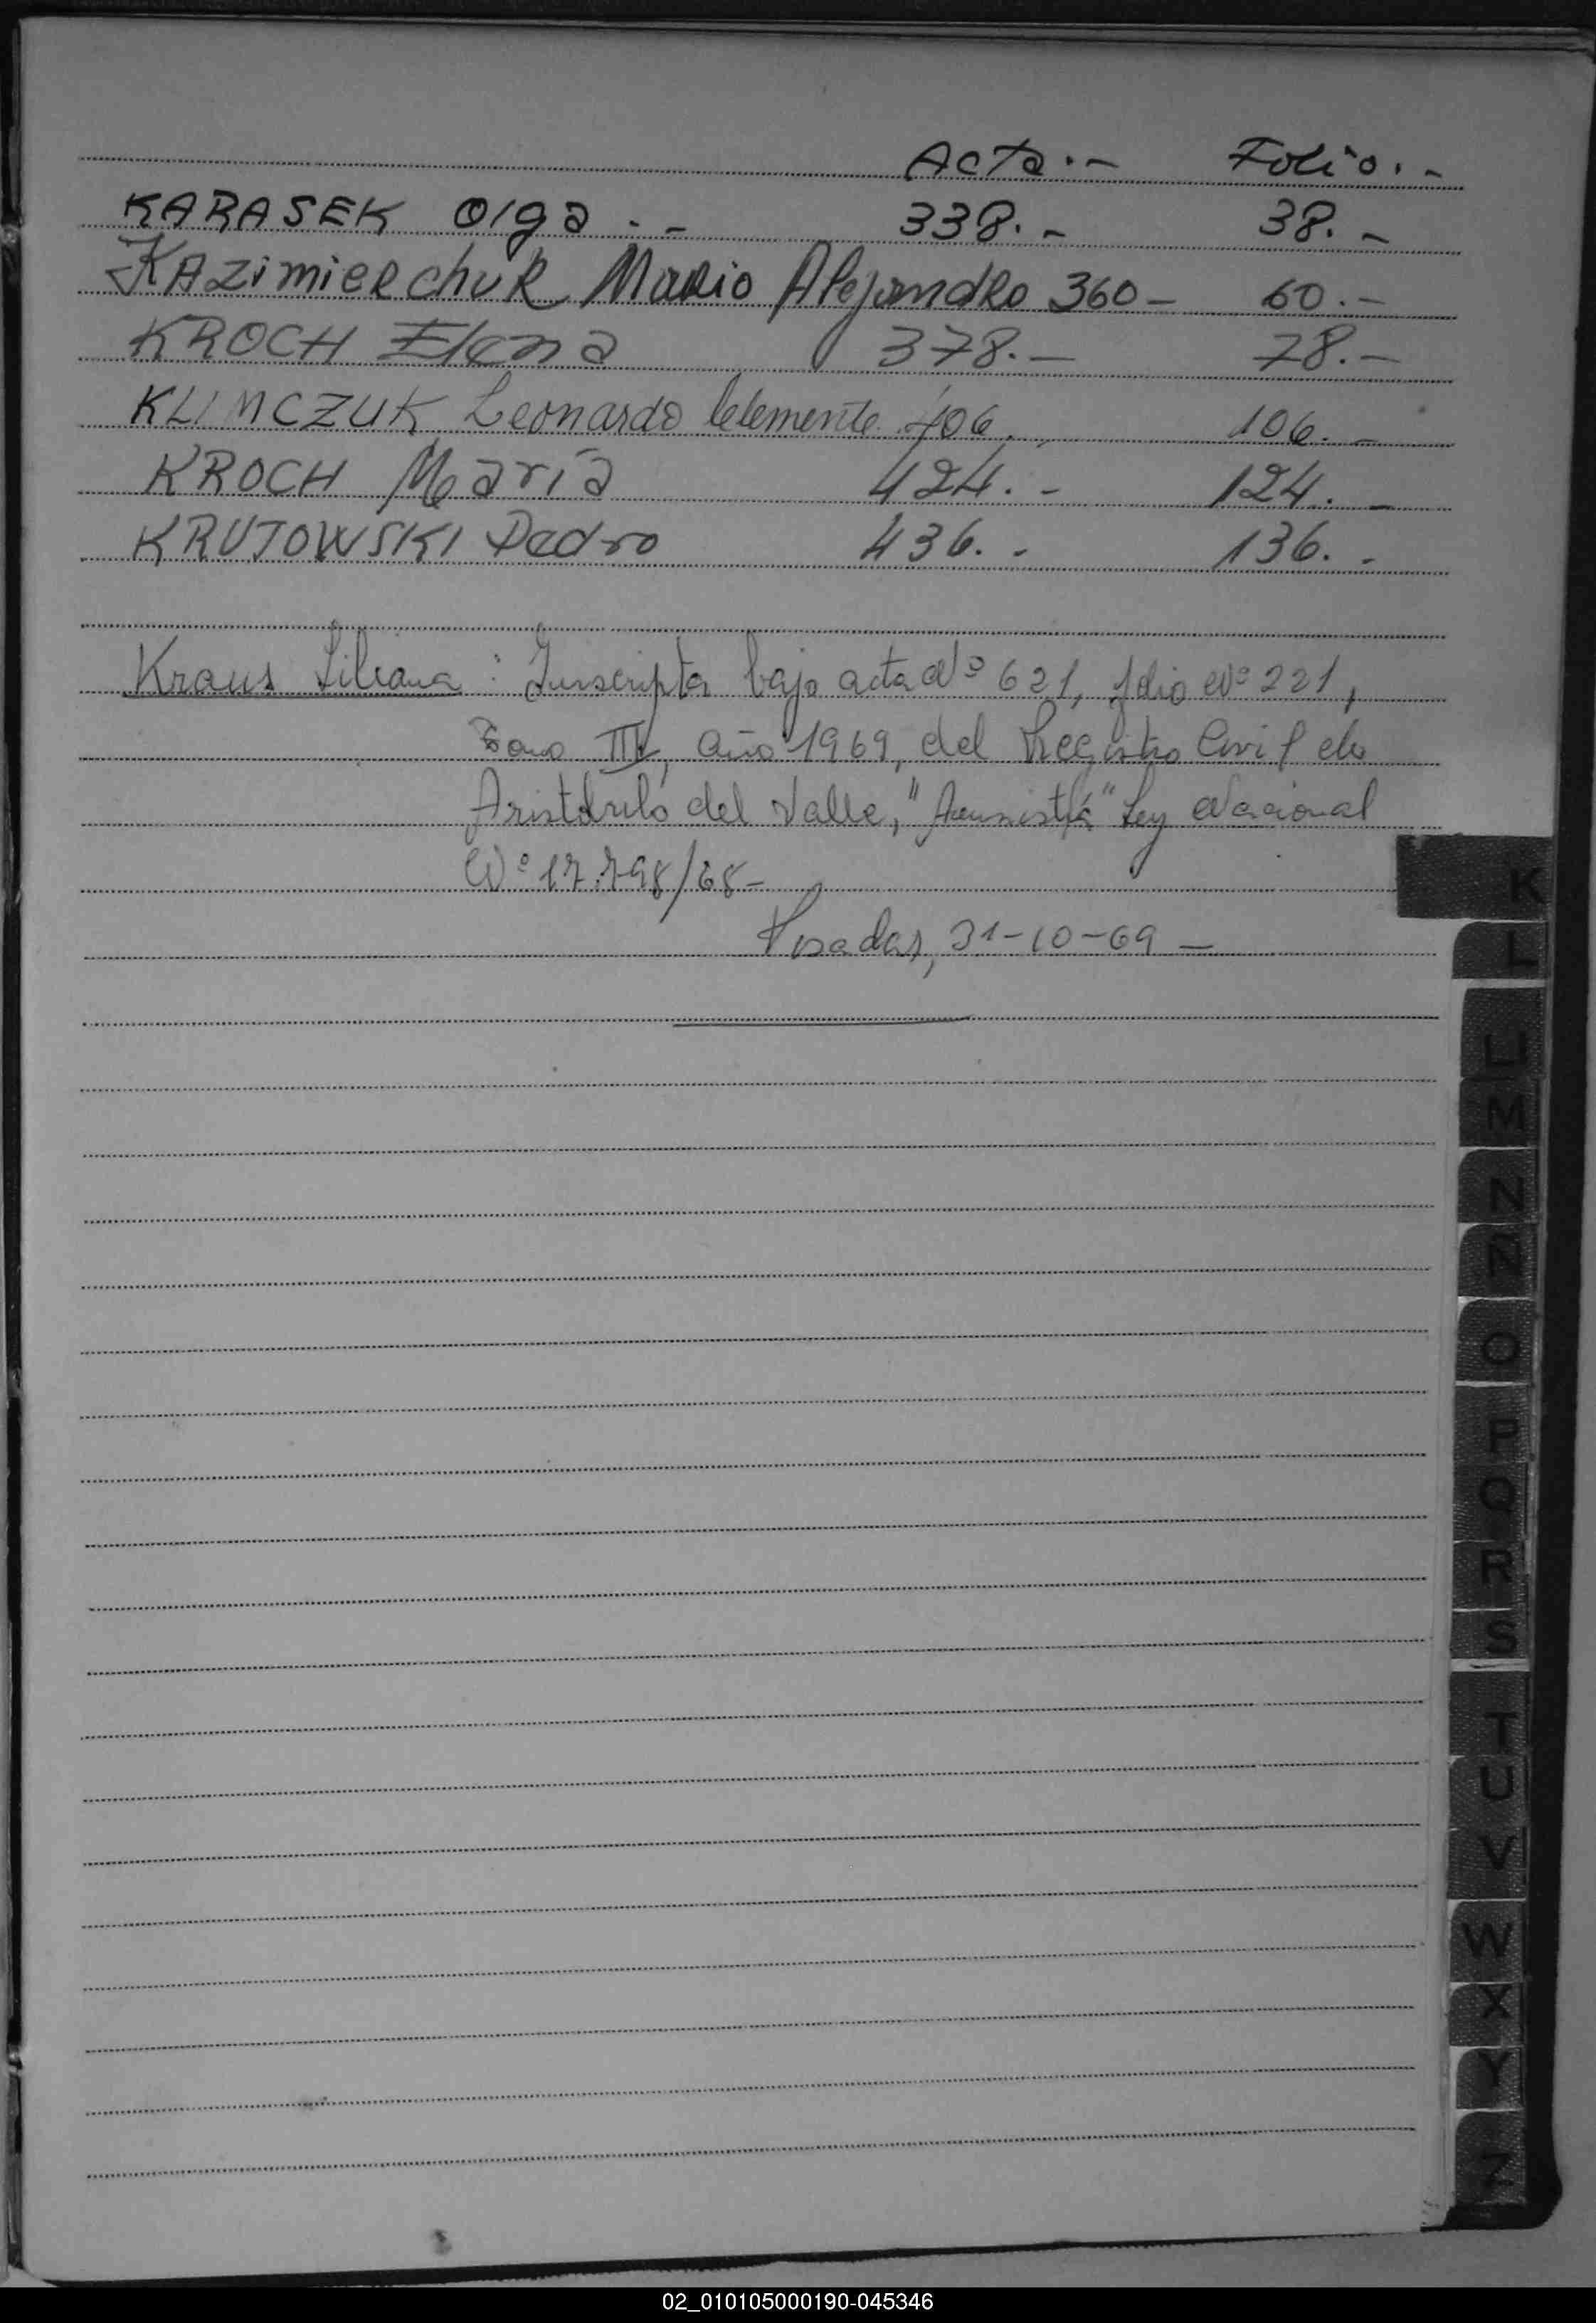 Acta.- Folio.-
KARASEK Olga.- 338.- 38.-
KAZimierchuK Mario Alejandro 360- 60.-
KROCH Elena 378.- 78.-
KLIMCZUK Leonardo Clemente 406.- 106.-
KROCH María 424.- 124.-
KRUTOWSKI Pedro 436.- 136.-
Kraus Liliana: Inscripta bajo acta Nº 621, folio Nº 221,
Tomo III, año 1969, del Registro Civil de
Aristóbulo del Valle, "Amnistía" Ley Nacional
Nº 17.798/68-
Posadas, 31-10-69-
K
L
LL
M
N
Ñ
O
P
Q
R
S
T
U
V
W
X
Y
Z
02_010105000190-045346